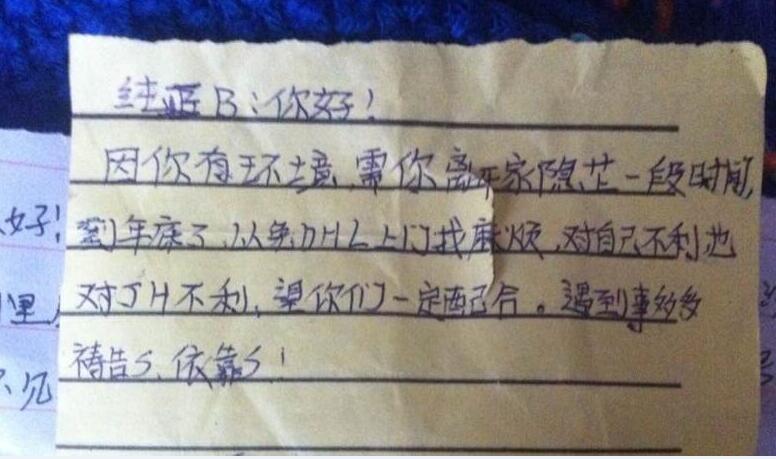 纯正B：你好！
因你有环境，需你离开家隐蔽一段时间，
到年底了，以免DHL上门找麻烦，对自己不利也
对JH不利，望你们一定配合。遇到事多多
祷告S，依靠S！
好！
里